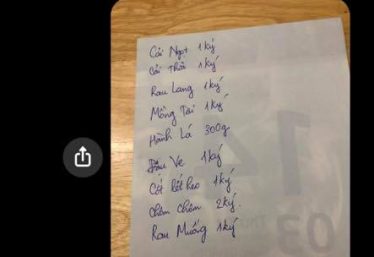 Cải Ngọt 1 ký
Cải Thìa 1 ký
Rau Lang 1 ký
Mồng Tơi 1 ký
Hành Lá 300g
Đậu Ve 1 ký
Cốt 1 ký
Chôm Chôm 2 ký.
Rau Muống 1 ký